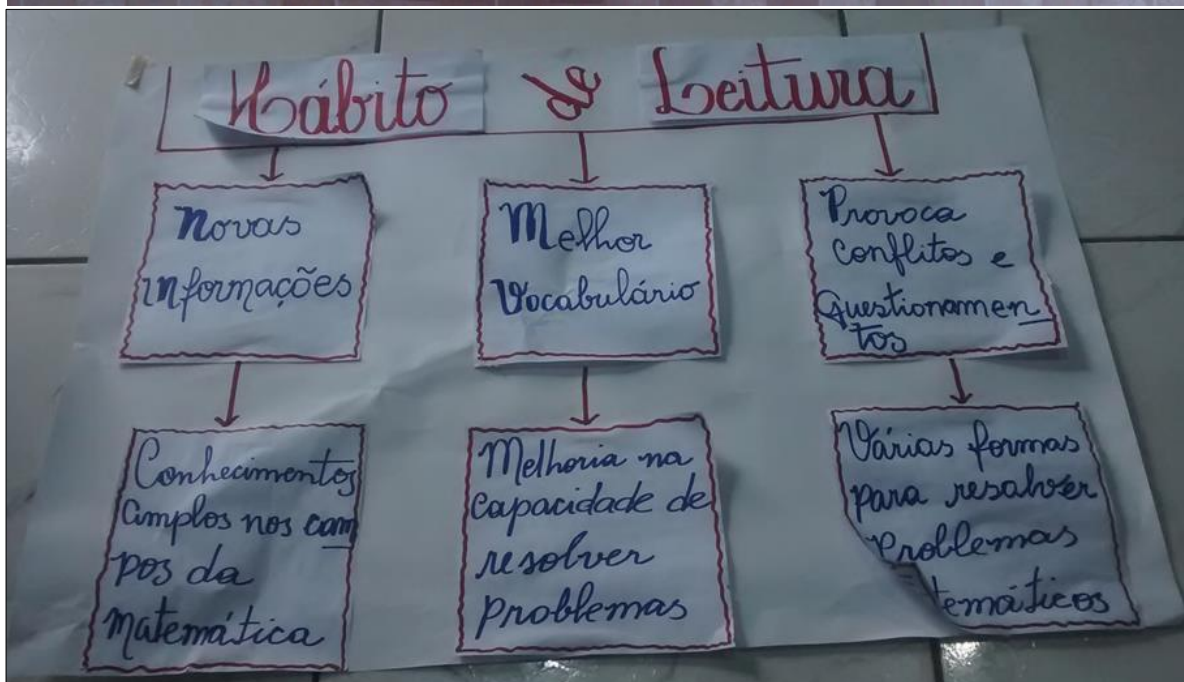 Hábito de Leitura
Novas
informações
Melhor
Vocabulário
Provoca
conflitos e
Questionamen
tos
Conhecimentos
amplos nos cam
pos da
matemática
Melhoria na
capacidade de
resolver
problemas
Várias formas
para resolver
Problemas
temáticos